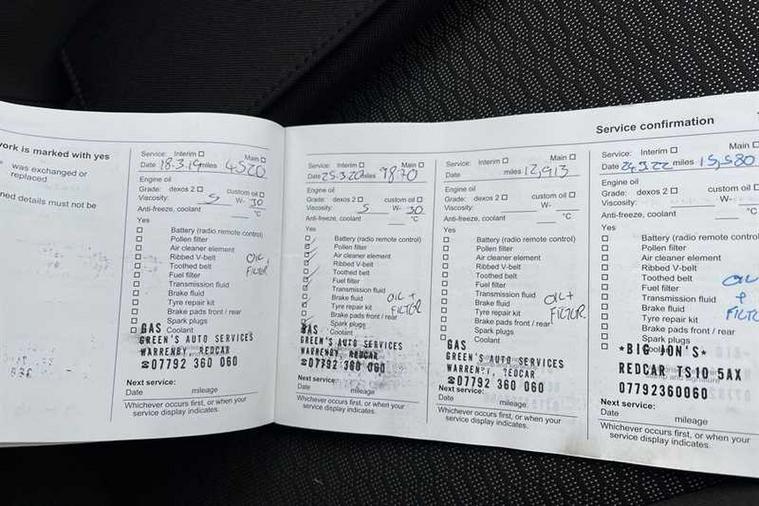 Service confirmation
work is marked with yes
was exchanged or
replaced
ned details must not be
Service: Interim Main
Date 18.3.19 miles 4520
Engine oil
Grade: dexos 2 custom oil
Viscosity: 5 W- 30
Anti-freeze, coolant °C
Yes
Battery (radio remote control)
Pollen filter
Air cleaner element
Ribbed V-belt
Toothed belt
Fuel filter
Transmission fluid
Brake fluid
Tyre repair kit
Brake pads front / rear
Spark plugs
Coolant
OIL
FILTER
GAS
GREEN'S AUTO SERVICES
WARRENBY, REDCAR
☎07792 360 060
Next service:
Date mileage
Whichever occurs first, or when your
service display indicates.
Service: Interim Main
Date 25-3-20 miles 9870
Engine oil
Grade: dexos 2 custom oil
Viscosity: 5 W- 30
Anti-freeze, coolant °C
Yes
Battery (radio remote control)
Pollen filter
Air cleaner element
Ribbed V-belt
Toothed belt
Fuel filter
Transmission fluid
Brake fluid
Tyre repair kit
Brake pads front / rear
Spark plugs
Coolant
OIL +
FILTER
GAS
GREEN'S AUTO SERVICES
WARRENBY, REDCAR
☎07792 360 060
Next service:
Date mileage
Whichever occurs first, or when your
service display indicates.
Service: Interim Main
Date miles 12,913
Engine oil
Grade: dexos 2 custom oil
Viscosity: W-
Anti-freeze, coolant °C
Yes
Battery (radio remote control)
Pollen filter
Air cleaner element
Ribbed V-belt
Toothed belt
Fuel filter
Transmission fluid
Brake fluid
Tyre repair kit
Brake pads front / rear
Spark plugs
Coolant
OIL +
FILTER
GAS
GREEN'S AUTO SERVICES
WARRENBY, REDCAR
☎07792 360 060
Next service:
Date mileage
Whichever occurs first, or when your
service display indicates.
Service: Interim Main
Date 24.3.22 miles 15,580
Engine oil
Grade: dexos 2 custom oil
Viscosity: W-
Anti-freeze, coolant °C
Yes
Battery (radio remote control)
Pollen filter
Air cleaner element
Ribbed V-belt
Toothed belt
Fuel filter
Transmission fluid
Brake fluid
Tyre repair kit
Brake pads front / rear
Spark plugs
OIL
+
FILTE
*BIG JON'S*
REDCAR TS10 5AX
07792360060
Next service:
Date mileage
Whichever occurs first, or when your
service display indicates.